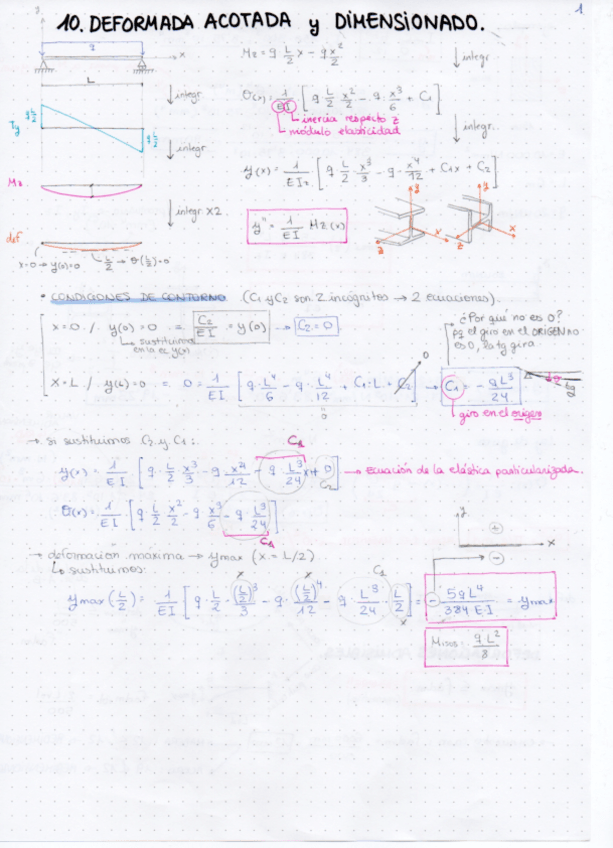 1
10. DEFORMADA ACOTADA y DIMENSIONADO.
q
x
L
Mz = q · L/2 x - q x²/2
↓ integr.
↓ integr.
θ(x) = 1/EI [q L/2 x²/2 - q · x³/6 + C1]
inercia respecto z
módulo elasticidad
↓ integr.
Ty
qL/2
qL/2
↓ integr.
y(x) = 1/EIz [q L/2 x³/3 - q · x⁴/12 + C1x + C2]
Mz
↓ integr x2.
y'' = 1/EI Mz(x)
y
x
z
y
x
z
def
x=0 → y(0)=0
L/2 → θ(L/2)=0
• CONDICIONES DE CONTORNO (C1 y C2 son 2 incógnitas → 2 ecuaciones).
x=0 / y(0)=0 = C2/EI = y(0) → C2=0
sustituimos
en la ec y(x)
¿Por qué no es 0?
pq el giro en el ORIGEN NO
es 0, la tg gira.
x=L / y(L)=0 = 0 = 1/EI [q·L⁴/6 - q·L⁴/12 + C1·L + C2] → C1 = - qL³/24
0
0
tg
giro en el origen
→ si sustituimos C2 y C1:
C1
y(x) = 1/EI [q · L/2 x³/3 - q x⁴/12 - q L³/24 x + 0] → ecuación de la elástica particularizada.
C2
θ(x) = 1/EI [q L/2 x²/2 - q x³/6 - q L³/24]
C1
y
+
x
-
→ deformación máxima → ymax (x = L/2)
↳ sustituimos:
x
x
C1
ymax (L/2) = 1/EI [q · L/2 · (L/2)³/3 - q · (L/2)⁴/12 - q · L³/24 · L/2] = - 5qL⁴/384 EI = ymax
x
qL²/8